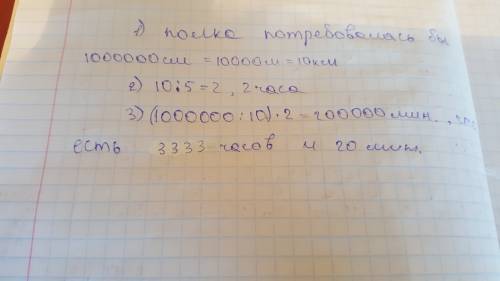 1) полка потребовалась бы
1000000см = 10000м = 10км
2) 10:5=2, 2 часа
3) (1000000:10)·2=200000мин.,
есть 3333 часов и 20 мин.